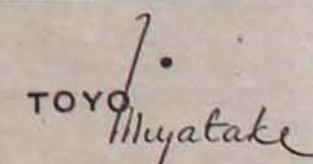 TOYO
Miyatake